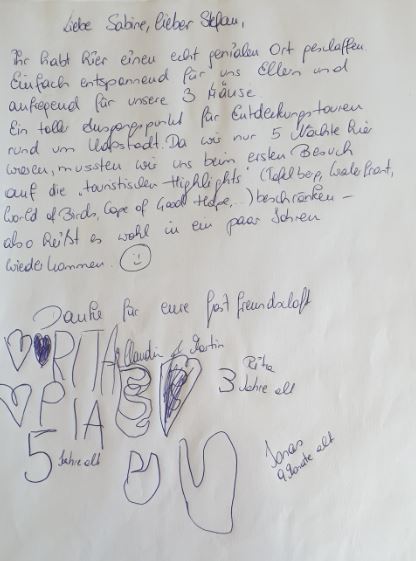 Liebe Sabine, lieber Stefan,
Ihr habt hier einen echt genialen Ort geschaffen.
Einfach entspannend für uns Eltern und
aufregend für unsere 3 Mäuse.
Ein toller Ausgangspunkt für Entdeckungstouren
rund um Kapstadt. Da wir nur 5 Nächte hier
waren, mussten wir uns beim ersten Besuch
auf die "touristischen Highlights" (Tafelberg, Waterfront,
World of Birds, Cape of Good Hope, ...) beschränken -
also heißt es wohl in ein paar Jahren
wiederkommen. ☺
Danke für eure Gastfreundschaft
Claudia & Martin
RITA
Rita
3 Jahre alt
PIA
5 Jahre alt
Jonas
9 Monate alt